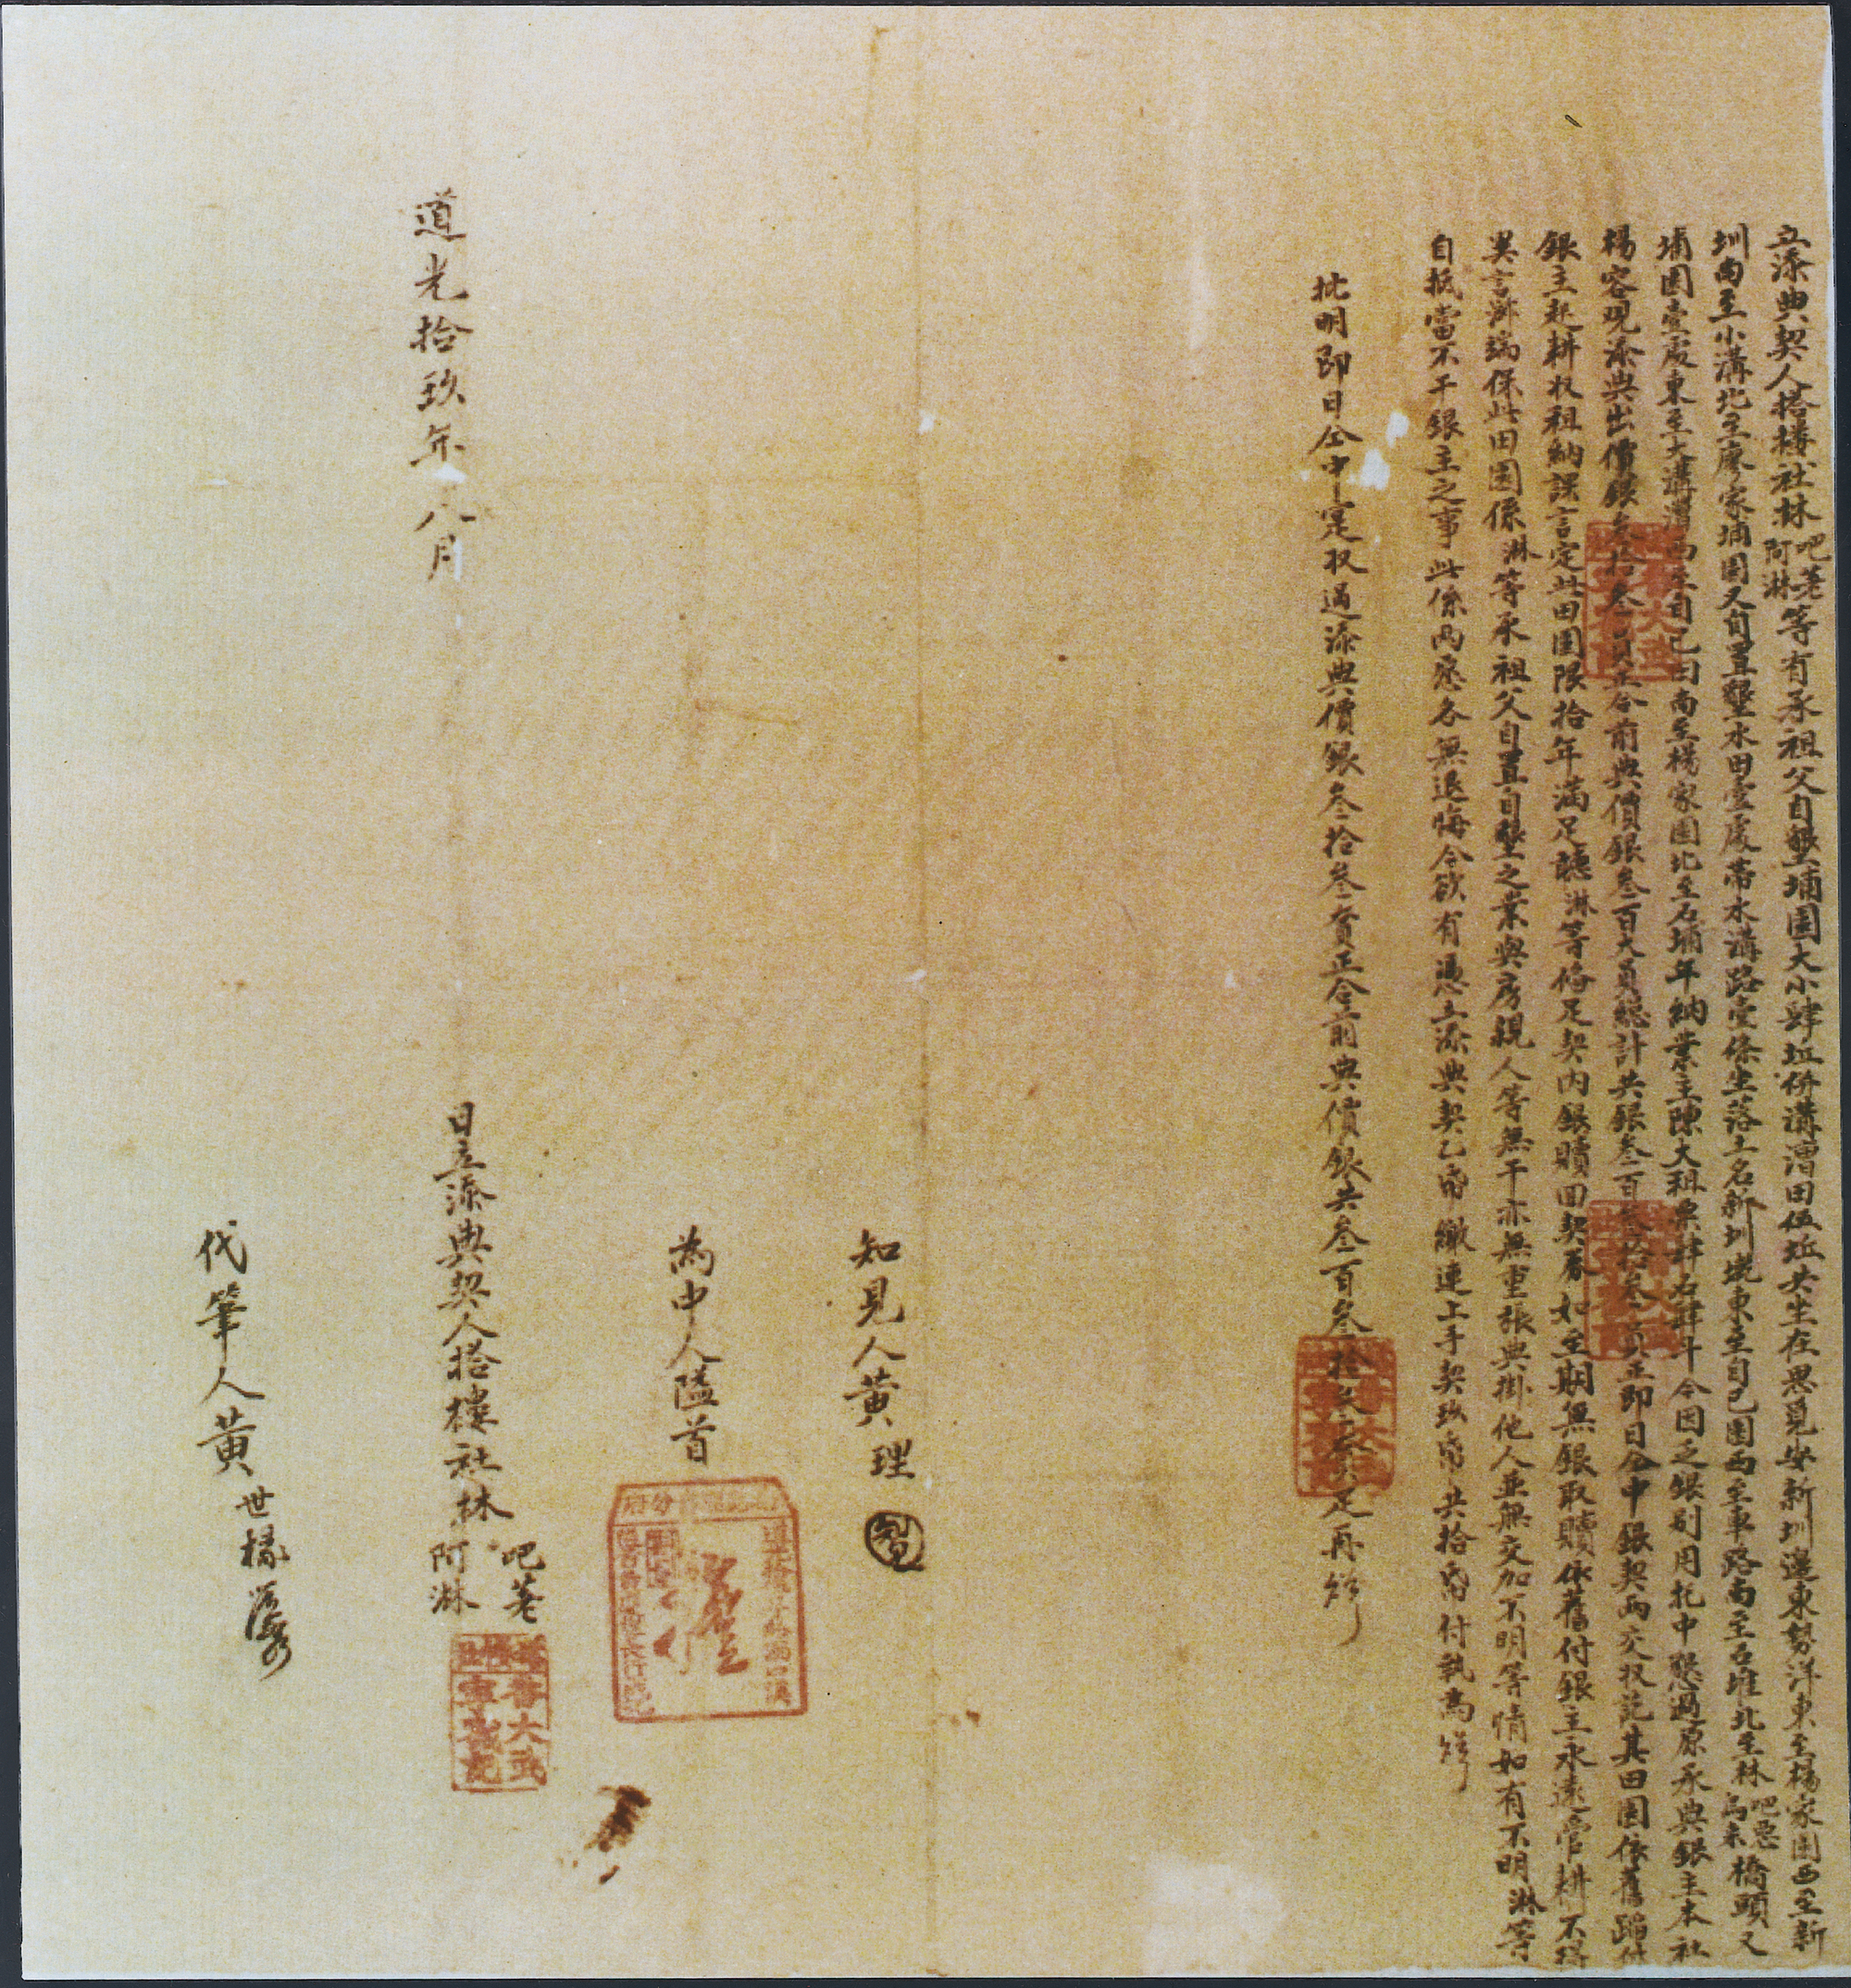 立添典契人搭樓社林吧荖阿淋等有承祖父自墾埔園大小肆坵併溝漕田伍坵共坐在思覓安新圳邊東勢洋東至楊家園西至新
圳南至小溝北至廖家埔園又自置墾水田壹處帶水溝路壹條坐落土名新圳墘東至自己園西至車路南至石堆北至林吧惡烏未橋頭又
埔園壹處東至大溝漕西至自己田南至楊家園北至石埔年納業主陳大租粟肆石肆斗今因乏銀別用托中懇過原承典銀主本社
楊容現添典出價銀叁拾叁員正合前典價銀叁百大員總計共銀叁百叁拾叁員正即日仝中銀契兩交收訖其田園依舊踏付
銀主起耕收租納課言定此田園限拾年滿足聽淋等俻足契內銀贖回契券如至期無銀取贖依舊付銀主永遠管耕不得
異言滋端保此田園係淋等承祖父自置自墾之業與房親人等無干亦無重張典掛他人並無交加不明等情如有不明淋等
自抵當不干銀主之事此係兩愿各無退悔今欲有憑立添典契乙帋繳連上手契玖帋共拾帋付執為炤
批明即日仝中寔收過添典價銀叁拾叁員正合前典價銀共叁百叁拾叁員足再炤
知見人黃理
為中人隘首
道光拾玖年八月 日立添典契人搭樓社林吧荖阿淋
代筆人黃世橋